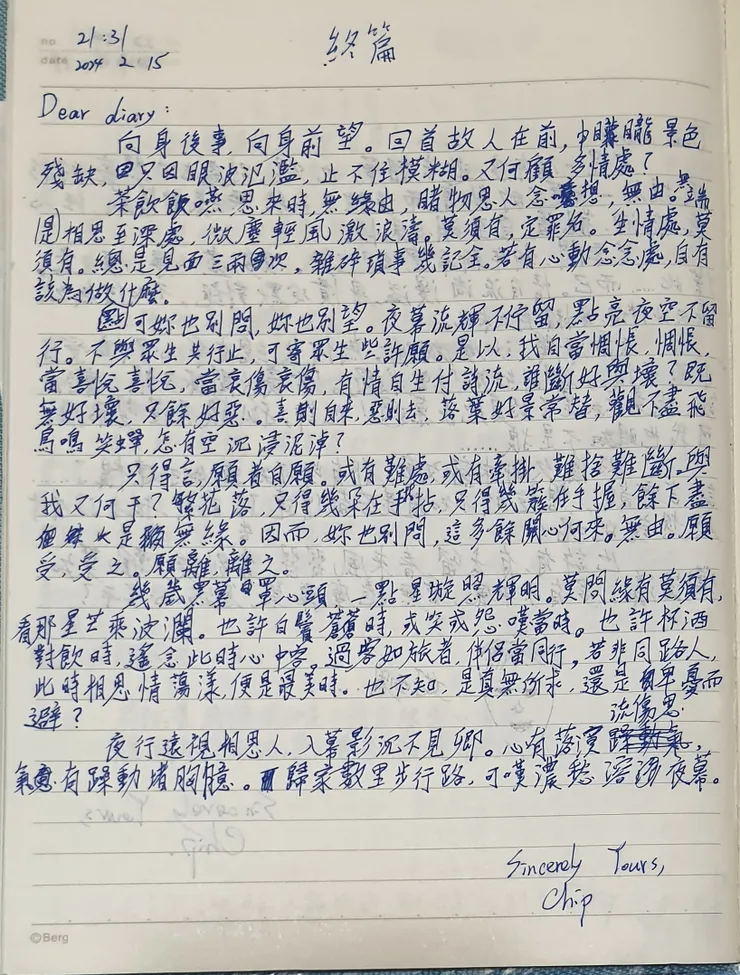 no 21:31
終篇
date 2024 2 15
Dear diary:
向身後事,向身前望。回首故人在前,朦朧景色
殘缺,只因眼波氾濫,止不住模糊。又何顧多情處?
茶飲飯嚥,思來時,無緣由,睹物思人念想,無由。無端
是相思至深處,微塵輕風激浪濤。莫須有,定罪名。生情處,莫
須有。總是見面三兩次,雜碎瑣事幾記全。若有心動念念處,自有
該為做什麼。
可妳也別問,妳也別望。夜幕流輝不佇留,點亮夜空不留
行。不與眾生共行止,可寄眾生些許願。是以,我自當惆悵,惆悵,
當喜悅喜悅,當哀傷哀傷,有情自生付詩流,誰斷好與壞?既
無好壞,只餘好惡。喜則自來,惡則去,落葉好景常替,觀不盡飛
鳥鳴笑蟬,怎有空沉浸泥淖?
只得言,願者自願。或有難處,或有牽掛,難捨難斷。與
我又何干?繁花落,只得幾朵在拈,只得幾簇在手握,餘下盡
是無緣。因而,妳也別問,這多餘關心何來。無由。願
受,受之。願離,離之。
幾歲黑幕罩心頭,一點星璇照輝明。莫問緣有莫須有,
看那星芒乘波瀾。也許白鬢蒼蒼時,或笑或怨嘆當時。也許杯酒
對飲時,遙念此時心中客。過客如旅者,伴侶當同行。若非同路人,
此時相思情蕩漾,便是最美時。也不知,是真無所求,還是早憂而
避?
流傷思
夜行遠視相思人,入幕影沉不見卿。心有落寞躁動氣,
氣有躁動堵胸臆。歸家數里步行路,可嘆濃愁溶溺夜幕。
Sincerely Yours,
Chip
©Berg